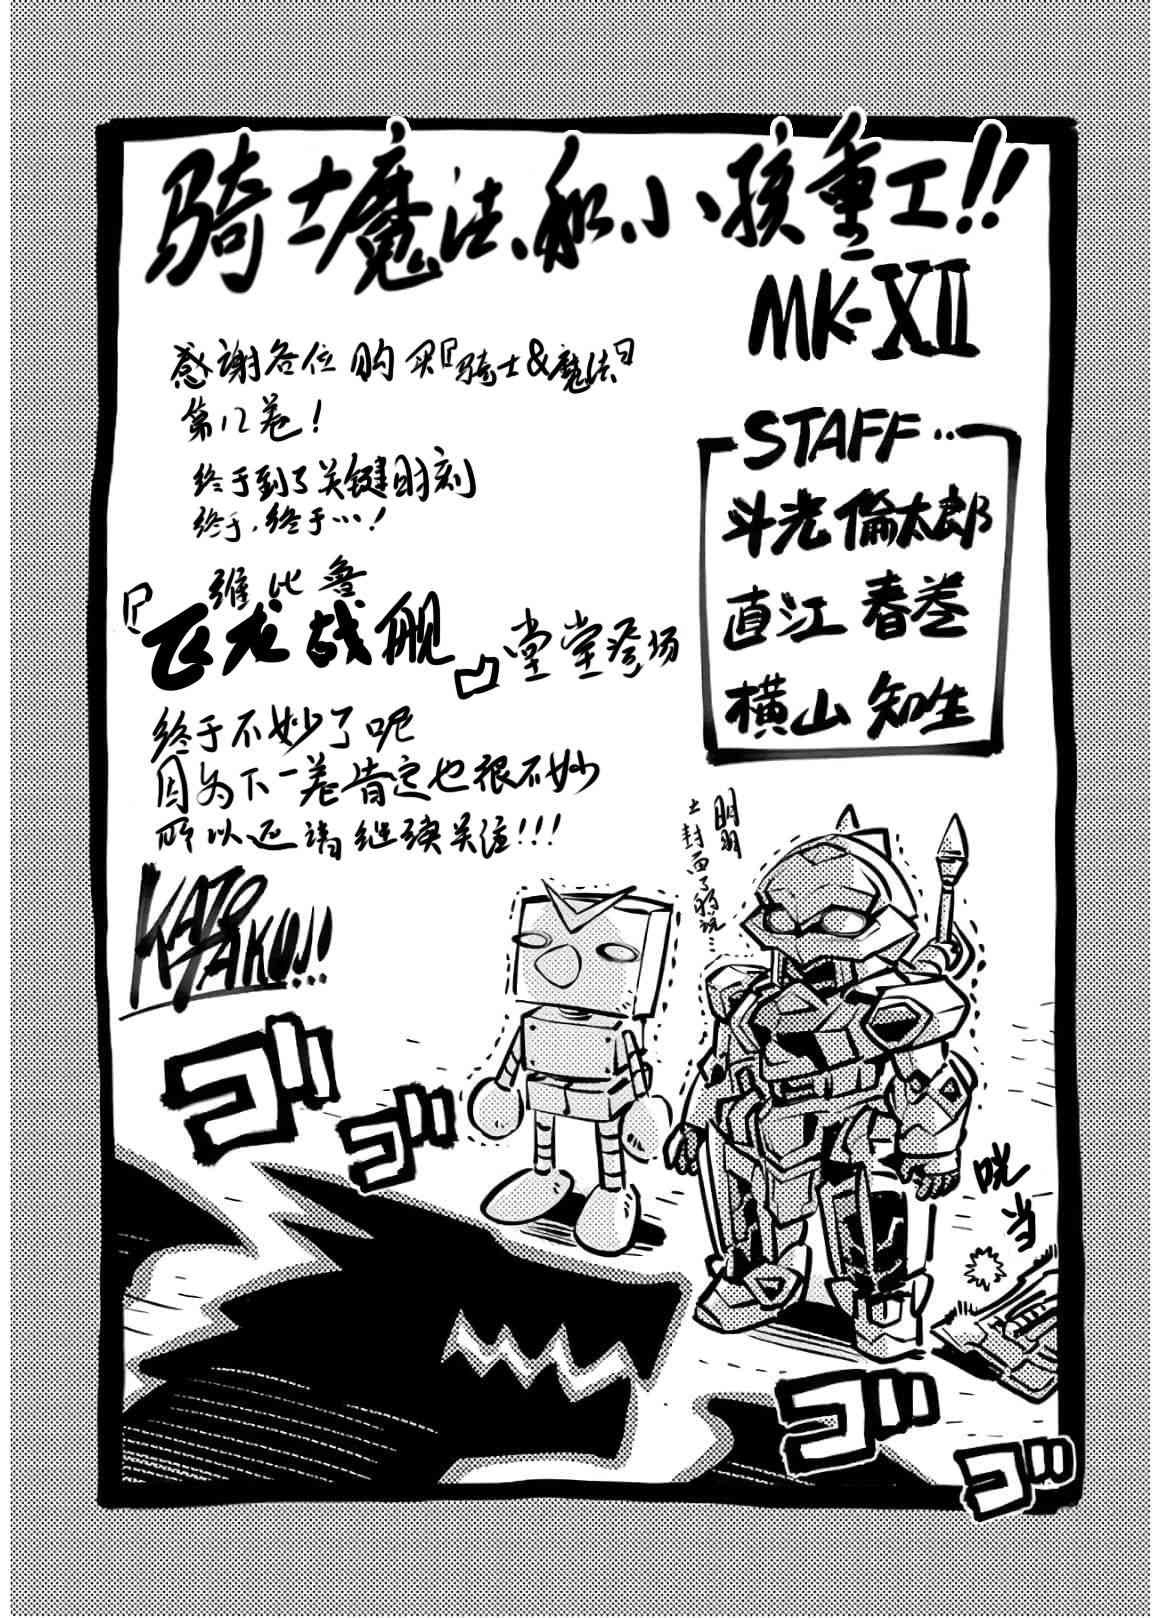 骑士魔法和小孩重工!!
MK-XII
感谢各位购买『骑士&魔法』
第12卷!
终于到了关键时刻
终于,终于…!
维比鲁
『飞龙战舰』堂堂登场
终于不妙了呢
因为下一卷肯定也很不妙
所以还请继续关注!!!
KATO TAKU!!!
STAFF…
斗光倫太郎
直江 春巻
横山 知生
明明
上封面了的说…
ゴゴ
咣当
ゴゴ